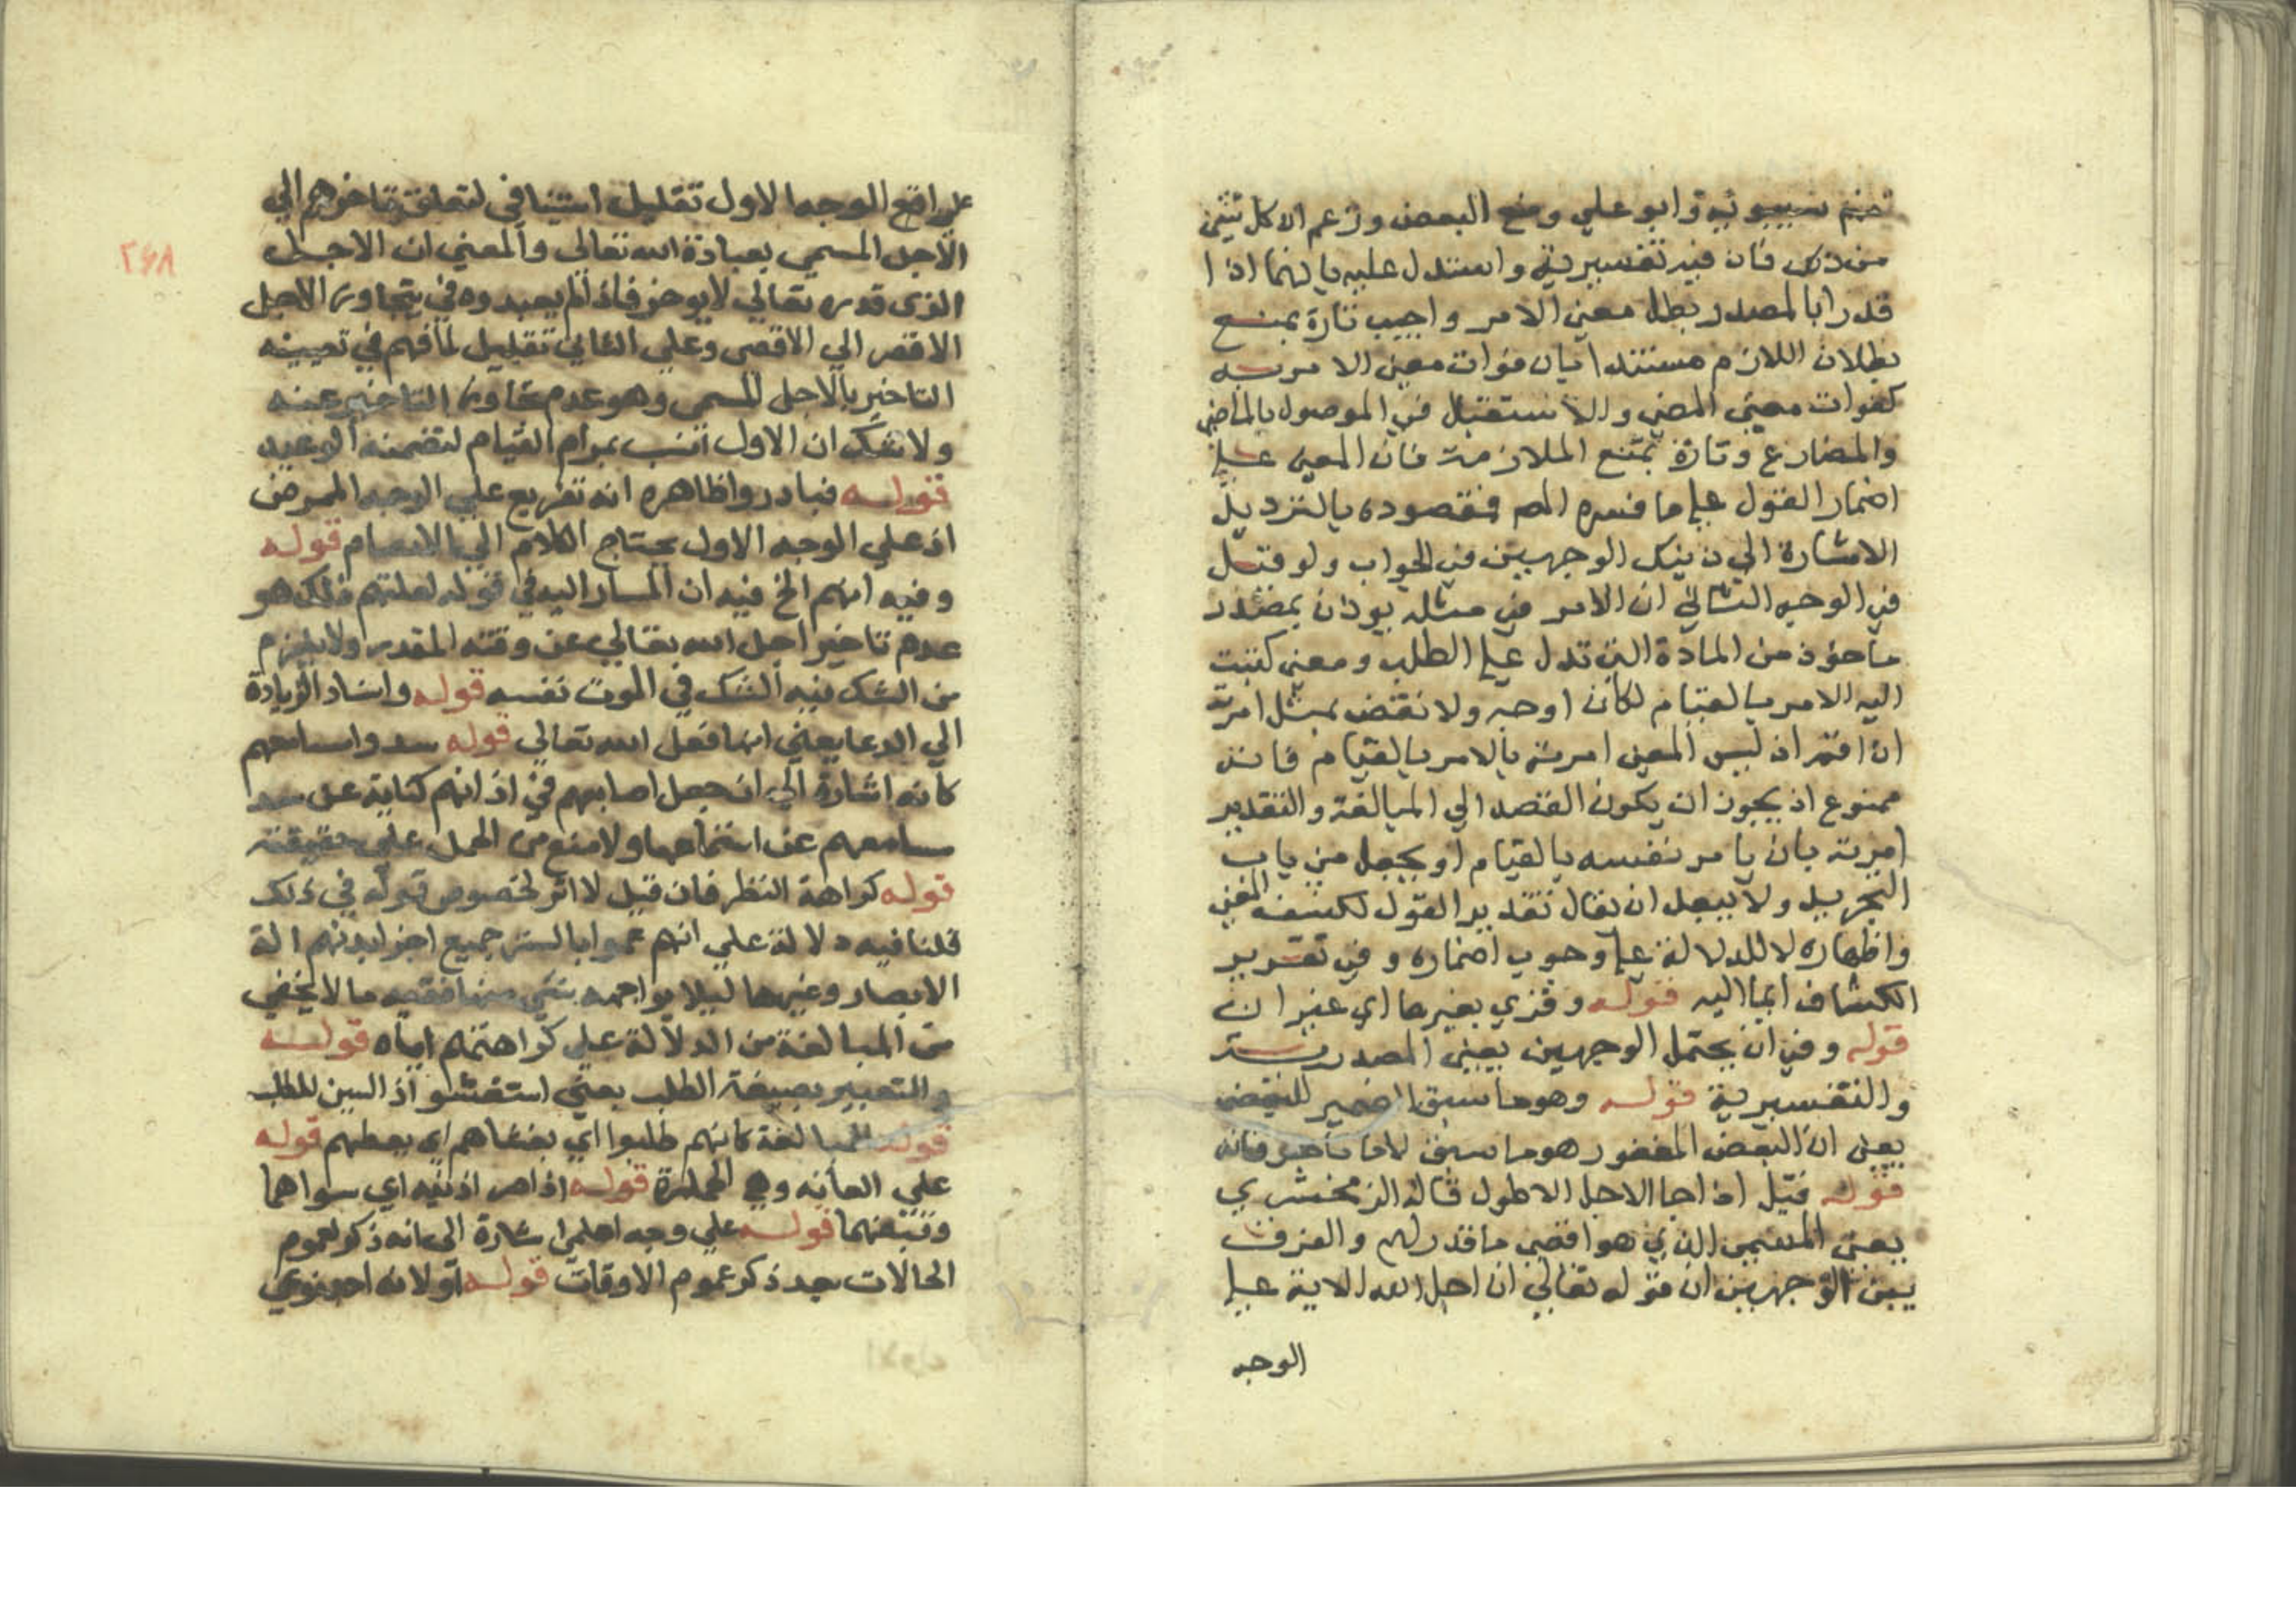 سيبويه وابو علي ومنع البعض وزعم ان كل شيئ
من ذلك فان فيه تفسيرية واستدل عليه بانهما اذا
قدرا بالمصدر بطل معنى الامر واجيب تارة بمنع
بطلان اللازم مستندا بان فوات معنى الامرية
كفوات معنى المضي والاستقبال في الموصول بالماضي
والمضارع وتارة بمنع الملازمة فان المعنى على
اضمار القول على ما فسره المص فمقصوده بالترديد
الاشارة الى ذينك الوجهين في الجواب ولو قيل
في الوجه الثاني ان الامر في مثله بان بمصدر
ماخوذ من المادة التي تدل على الطلب ومعنى كتبت
اليه الامر بالقيام لكان اوجه ولا نقض بمثل امرته
ان اقم اذ ليس المعنى امرته بالامر بالقيام فانه
ممنوع اذ يجوز ان يكون القصد الي المبالغة والتقدير
امرته بان يامر نفسه بالقيام او يجعل من باب
التجريد ولا يبعد ان يقال تقدير القول لكشف المعنى
واظهاره لا للدلالة على وجوب اضماره وفي تقرير
الكشاف ايما اليه قوله وقري بغيرها اي غير ان
قوله وفي ان يحتمل الوجهين يعني المصدرية
والتفسيرية قوله وهو ما سبق
يعني ان البعض المغفور هو ما سبق لا ما تاخر فانه
قوله قيل اذا جا الاجل الاطول قاله الزمخشري
يعني المسمى الذي هو اقصى ما قدر لهم والفرق
بين الوجهين ان قوله تعالى ان اجل الله الاية على
الوجه
٢٦٨
الوجه الاول تعليل استينافي لتعلق تاخرهم الي
الاجل المسمي بعبادة الله تعالى والمعني ان الاجل
الذى قدره تعالي لا يوخر فاذا لم يعبدوه في يتجاوز الاجل
الاقصر الي الاقصى وعلى الثاني تعليل لما فهم في تعيينه
التاخير بالاجل المسمي وهو عدم تجاوز التاخير عنه
ولا شك ان الاول انسب بمرام القيام لتضمنه الوعيد
قوله فبادروا ظاهره انه تفريع علي الوجه الممرض
اذ علي الوجه الاول يحتاج الكلام الي بالانضمام قوله
وفيه انهم الخ فيه ان المشار اليه في قوله لعلتهم ذلك هو
عدم تاخير اجل الله تعالي عن وقته المقدر ولا يلزم
من الشك فيه الشك في الموت نفسه قوله واسناد الزيادة
الي الدعا يعني انها فعل الله تعالي قوله سدوا مسامعهم
كانه اشارة الي ان جعل اصابعهم في اذانهم كناية عن سد
مسامعهم عن استماعها ولا منع من الحمل علي حقيقته
قوله كراهة النظر فان قيل لا اثر لخصوص قوله في ذلك
قلنا فيه دلالة علي انهم عموا بالستر جميع اجزا بدنهم الة
الابصار وغيرها ليلا يواجهه شي منها ففيه ما لا يخفي
من المبالغة من الدلالة علي كراهتهم اياه قوله
والتعبير بصيغة الطلب يعني استغشوا اذ السين للطلب
قوله للمبالغة كانهم طلبوا اي يغشاهم اي يعطهم قوله
علي العانة وهي قوله اذا صر اذنيه اي سواهما
ونصبهما قوله علي وجه اعلم اشارة الى انه ذكر لعموم
الحالات بعد ذكر عموم الاوقات قوله اولانه احد نوعي